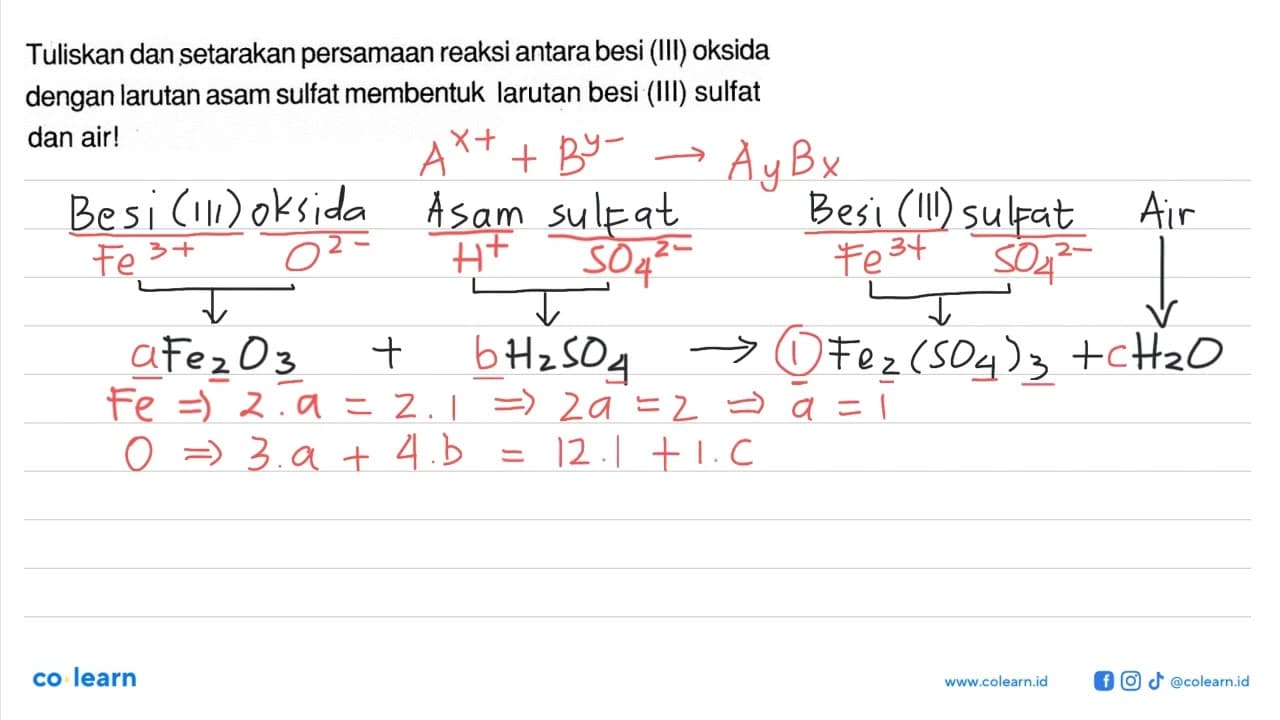 Tuliskan dan setarakan persamaan reaksi antara besi (III) oksida
dengan larutan asam sulfat membentuk larutan besi (III) sulfat
dan air!
A^x+ + B^y- → AyBx
Besi (III) oksida Asam sulfat Besi (III) sulfat Air
Fe³⁺ O²⁻ H⁺ SO₄²⁻ Fe³⁺ SO₄²⁻
aFe₂O₃ + bH₂SO₄ → ①Fe₂(SO₄)₃ + cH₂O
Fe ⇒ 2.a = 2.1 ⇒ 2a = 2 ⇒ a = 1
O ⇒ 3.a + 4.b = 12.1 + 1.c
co learn
www.colearn.id
@colearn.id